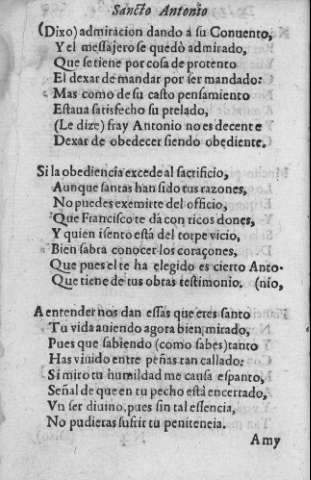 Sancto Antonio
(Dixo) admiracion dando a su Conuento,
Y el messajero se quedò admirado,
Que se tiene por cosa de protento
El dexar de mandar por ser mandado:
Mas como de su casto pensamiento
Estaua satisfecho su prelado,
(Le dize) fray Antonio no es decente
Dexar de obedecer siendo obediente.
Si la obediencia excede al sacrificio,
Aunque santas han sido tus razones,
No puedes exemirte del officio,
Que Francisco te dà con ricos dones,
Y quien isento està del torpe vicio,
Bien sabra conocer los coraçones,
Que pues el te ha elegido es cierto Anto-
Que tiene de tus obras testimonio. (nio,
A entender nos dan essas que eres santo
Tu vida auiendo agora bien mirado,
Pues que sabiendo (como sabes) tanto
Has viuido entre peñas tan callado:
Si miro tu humildad me causa espanto,
Señal de que en tu pecho està encerrado,
Vn ser diuino, pues sin tal essencia,
No pudieras sufrir tu penitencia.
A my